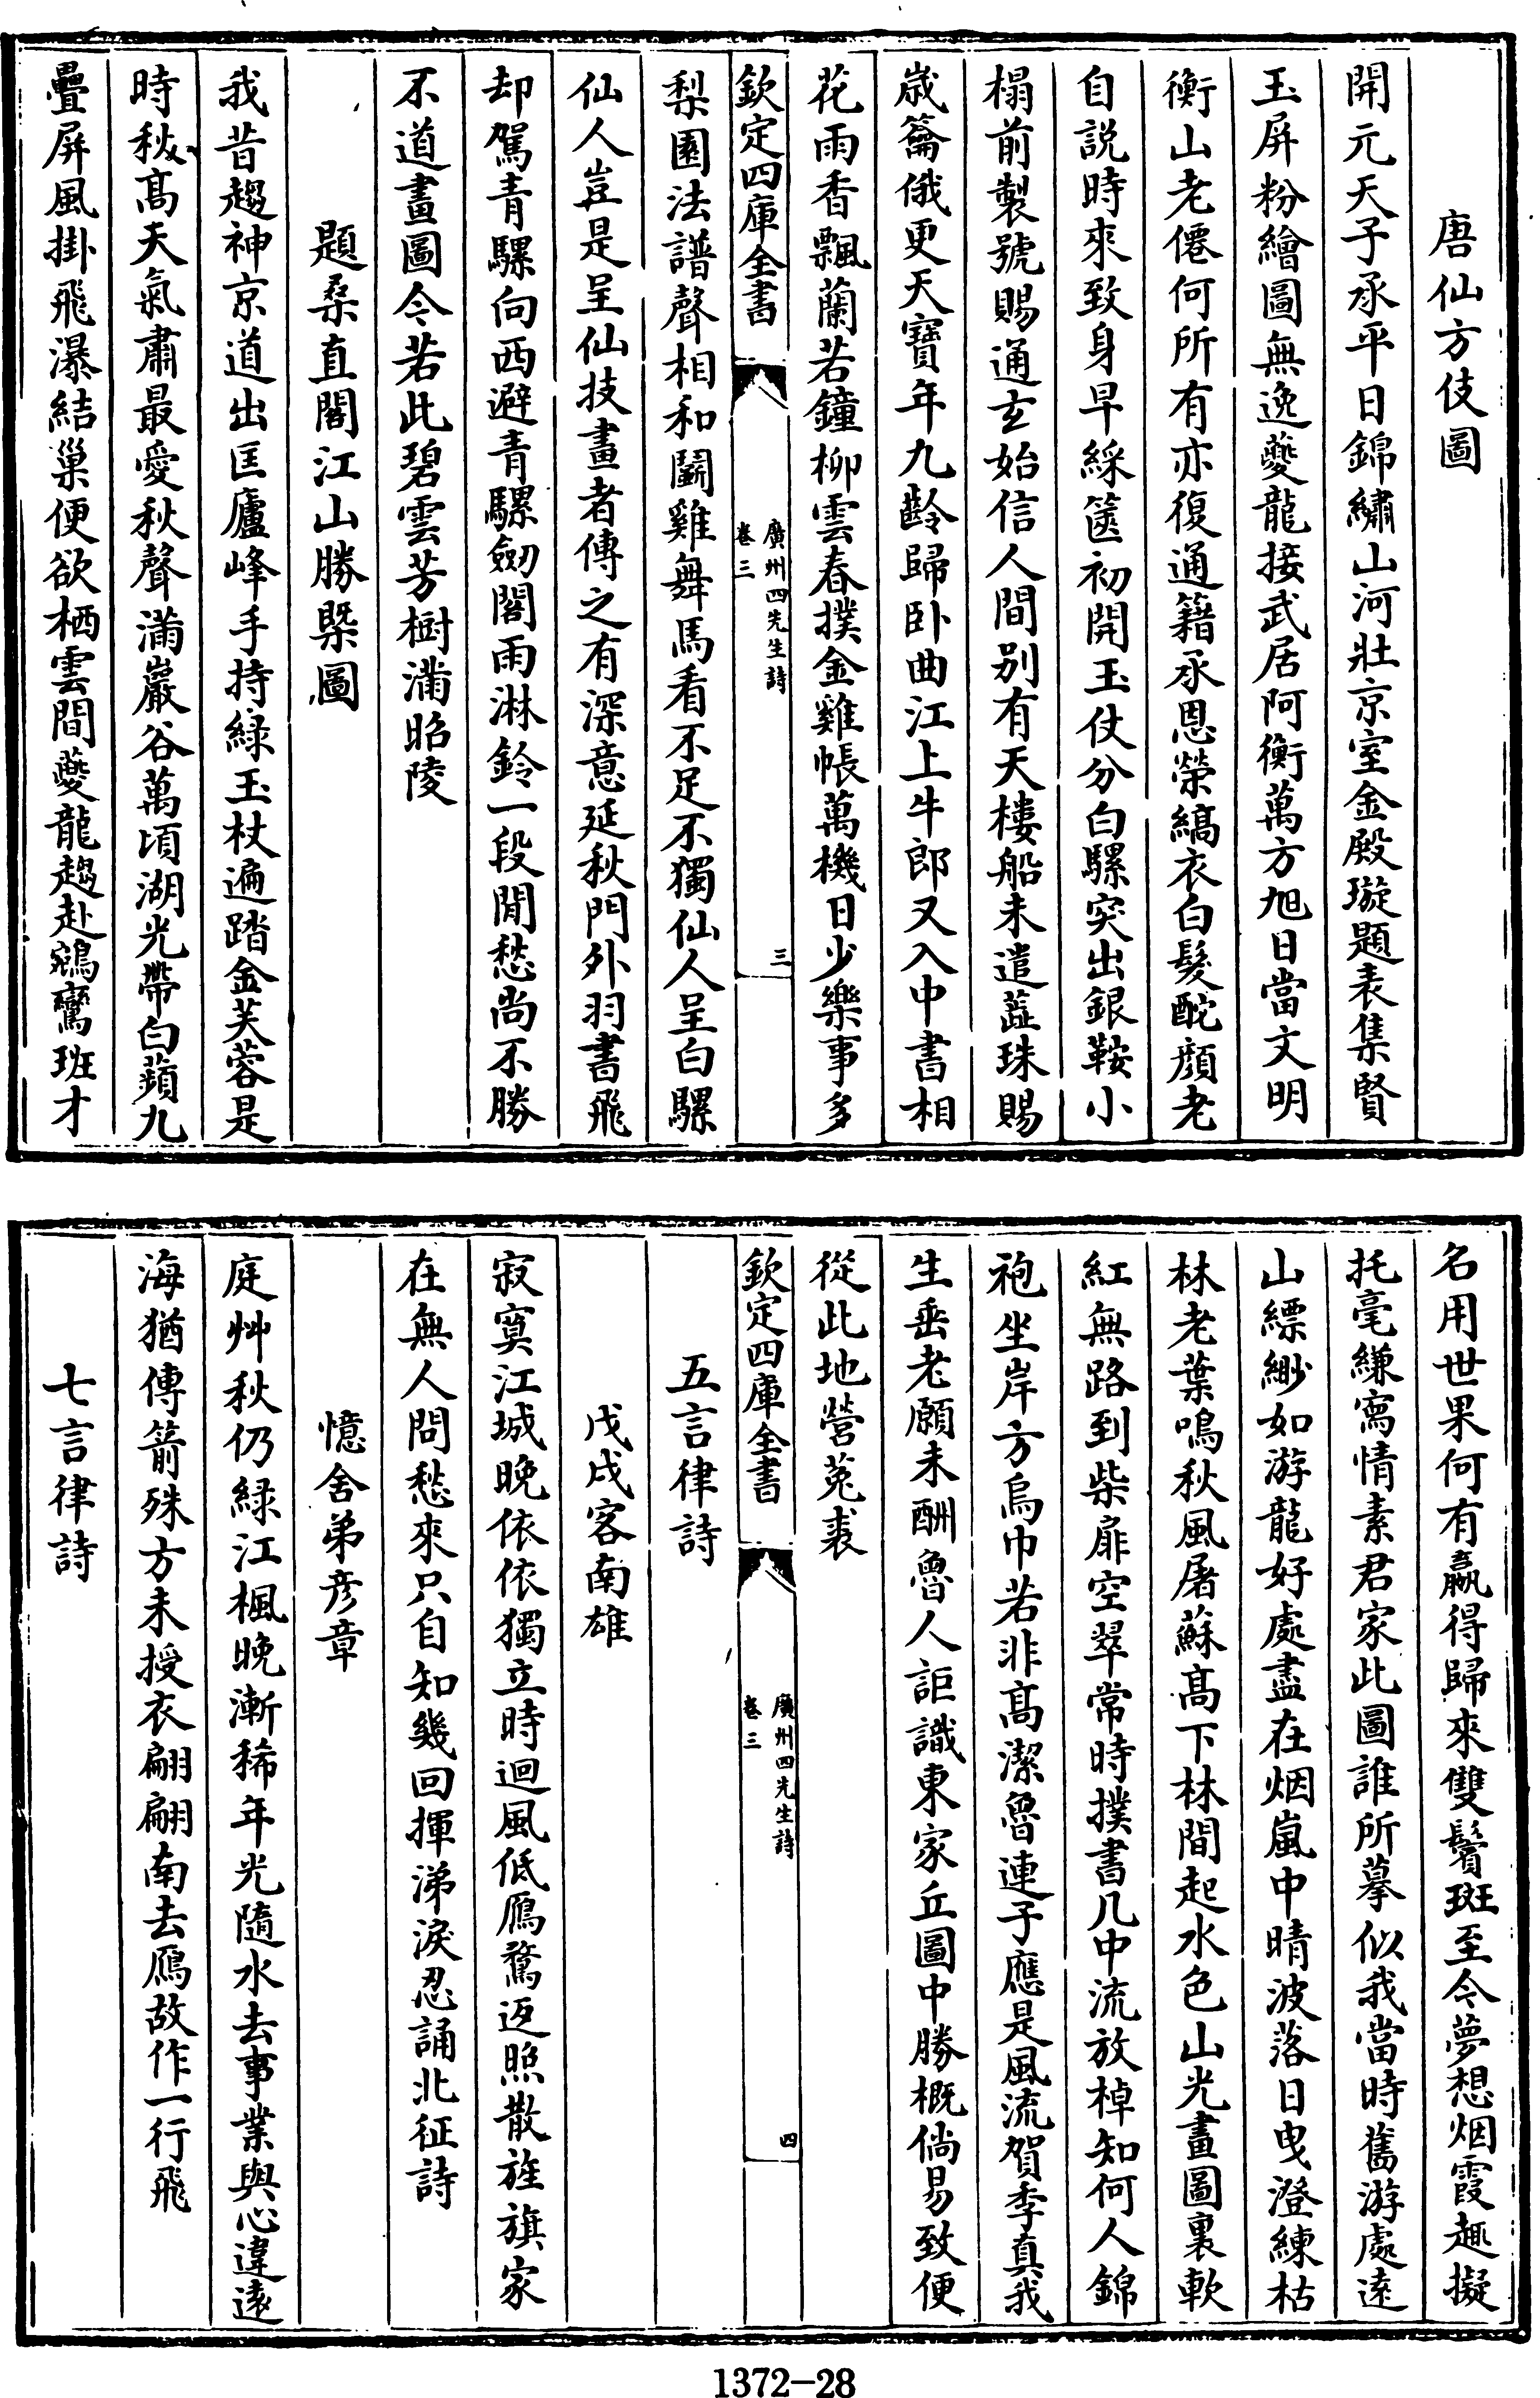 唐仙方伎圖
開元天子承平日錦繡山河壯京室金殿璇題表集賢
玉屏粉繪圖無逸夔龍接武居阿衡萬方旭日當文明
衡山老僊何所有亦復通籍承恩榮縞衣白髮酡顔老
自説時來致身早綵篋初開玉仗分白騾突出銀鞍小
榻前製號賜通玄始信人間别有天樓船未遣蕋珠賜
歲籥俄更天寶年九齡歸卧曲江上牛郎又入中書相
花雨香飄蘭若鐘柳雲春撲金雞帳萬機日少樂事多
欽定四庫全書
廣州四先生詩
卷三
三
梨園法譜聲相和鬬雞舞馬看不足不獨仙人呈白騾
仙人豈是呈仙技畫者傳之有深意延秋門外羽書飛
却駕青騾向西避青騾劒閣雨淋鈴一段閒愁尚不勝
不道畫圖今若此碧雲芳樹滿昭陵
題桑直閣江山勝槩圖
我昔趨神京道出匡廬峰手持緑玉杖遍踏金芙蓉是
時秋髙天氣肅最愛秋聲滿巖谷萬頃湖光帶白蘋九
疊屏風掛飛瀑結巢便欲栖雲間夔龍趨赴鵷鸞班才
名用世果何有贏得歸來雙鬢斑至今夢想烟霞趣擬
托毫縑寫情素君家此圖誰所摹似我當時舊游處逺
山縹緲如游龍好處盡在烟嵐中晴波落日曳澄練枯
林老葉鳴秋風屠蘇髙下林間起水色山光畫圖裏軟
紅無路到柴扉空翠常時撲書几中流放棹知何人錦
袍坐岸方烏巾若非髙潔魯連子應是風流賀季真我
生垂老願未酬魯人詎識東家丘圖中勝概倘易致便
從此地營菟裘
欽定四庫全書
廣州四先生詩
卷三
四
五言律詩
戊戌客南雄
寂寞江城晚依依獨立時迴風低鴈鶩返照散旌旗家
在無人問愁來只自知幾回揮涕淚忍誦北征詩
憶舍弟彦章
庭艸秋仍緑江楓晚漸稀年光隨水去事業與心違逺
海猶傳箭殊方未授衣翩翩南去鴈故作一行飛
七言律詩
1372-28